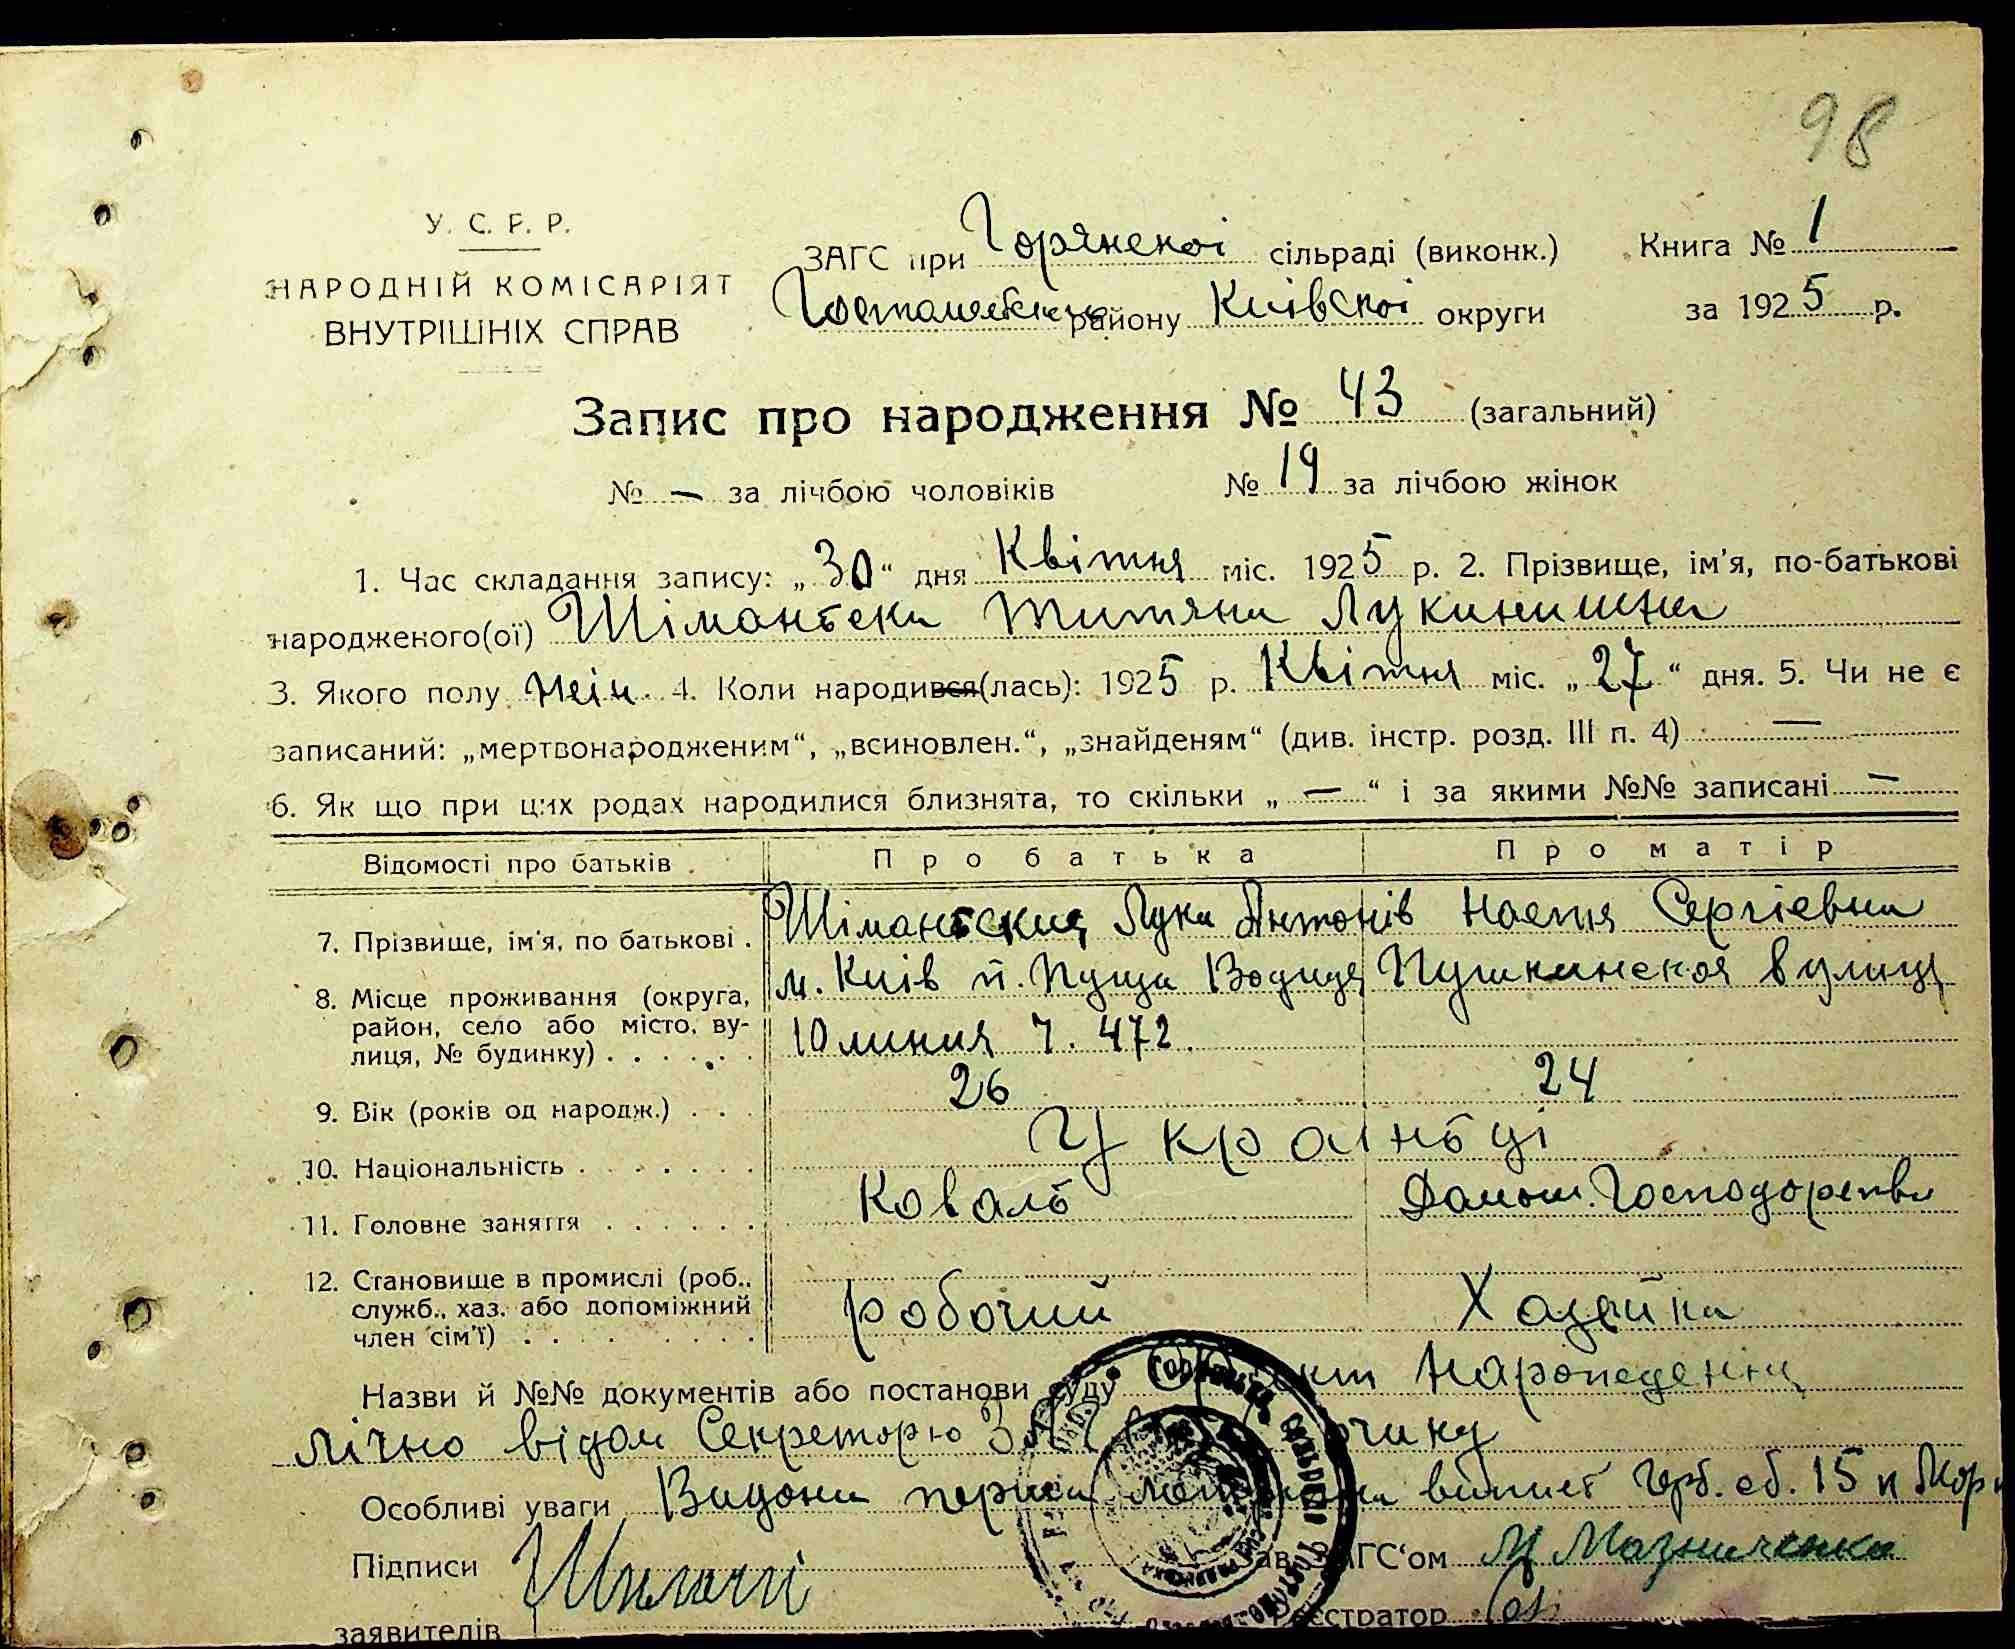 98
У. С. Р. Р.
НАРОДНІЙ КОМІСАРІЯТ
ВНУТРІШНІХ СПРАВ
ЗАГС при Горянскоі сільраді (виконк.) Книга № 1
району Киівскоі округи за 1925 р.
Запис про народження № 43 (загальний)
№ — за лічбою чоловіків № 19 за лічбою жінок
1. Час складання запису: „30“ дня Квітня міс. 1925 р. 2. Прізвище, ім'я, по-батькові
народженого(ої) Шіманьска Титяна Лукинишна
3. Якого полу жін. 4. Коли народився(лась): 1925 р. Квітня міс. „27“ дня. 5. Чи не є
записаний: „мертвонародженим“, „всиновлен.“, „знайденям“ (див. інстр. розд. III п. 4) —
6. Як що при цих родах народилися близнята, то скільки „ — “ і за якими №№ записані —
Відомості про батьків Про батька Про матір
7. Прізвище, ім'я, по батькові . Шіманьский Лука Антонів Настя Сергіевна
8. Місце проживання (округа, м. Киів п. Пуща Водиця Пушкинская вулиця
район, село або місто, ву-
лиця, № будинку) . . . . . . 10 линия ч. 472.
9. Вік (років од народж.) . . . 26 24
10. Національність . . . . . . . Украіньці
11. Головне заняття . . . . . . Коваль Домаш. Господарства
12. Становище в промислі (роб.,
служб., хаз. або допоміжний робочий Хазяйка
член сім'ї) . . . . . . . .
Назви й №№ документів або постанови суду
лічно відом Секреторю
Особливі уваги Видона виписъ герб. сб. 15 к
Підписи Зав. ЗАГС'ом М Мазниченко
заявителів Реєстратор